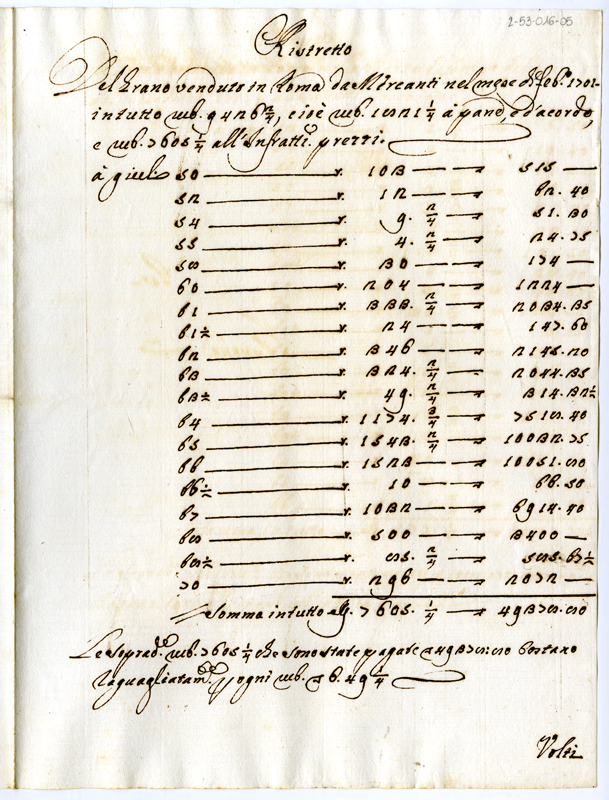 2-53-016-05
Ristretto
Del Grano venduto in Roma da Mercanti nel mese di Feb.º 1701-
in tutto rub. 9426 2/4, cioè rub. 1821 1/4 à pane, ed' acordo,
e rub. 7605 1/4 all'Infratti prezzi.
à giulij 50 — r. 103 — 515 —
52 — r. 12 — 62.40
54 — r. 9. 2/4 — 51.30
55 — r. 4. 2/4 — 24.75
58 — r. 30 — 174 —
60 — r. 204 — 1224 —
61 — r. 333. 2/4 — 2034.35
61 1/2 — r. 24 — 147.60
62 — r. 346 — 2145.20
63 — r. 324. 2/4 — 2044.35
63 1/2 — r. 49. 2/4 — 314.32 1/2
64 — r. 1174. 3/4 — 7518.40
65 — r. 1543. 2/4 — 10032.75
66 — r. 1523 — 10051.80
66 1/2 — r. 10 — 66.50
67 — r. 1032 — 6914.40
68 — r. 500 — 3400 —
68 1/2 — r. 85. 2/4 — 585.67 1/2
70 — r. 296 — 2072 —
Somma in tutto 7605. 1/4 — 49378.80
Le soprad.e rub. 7605 1/4 che sono state pagate 49378:80 Costano
raguagliatam.te p ogni rub. 6.49 1/4
Volti